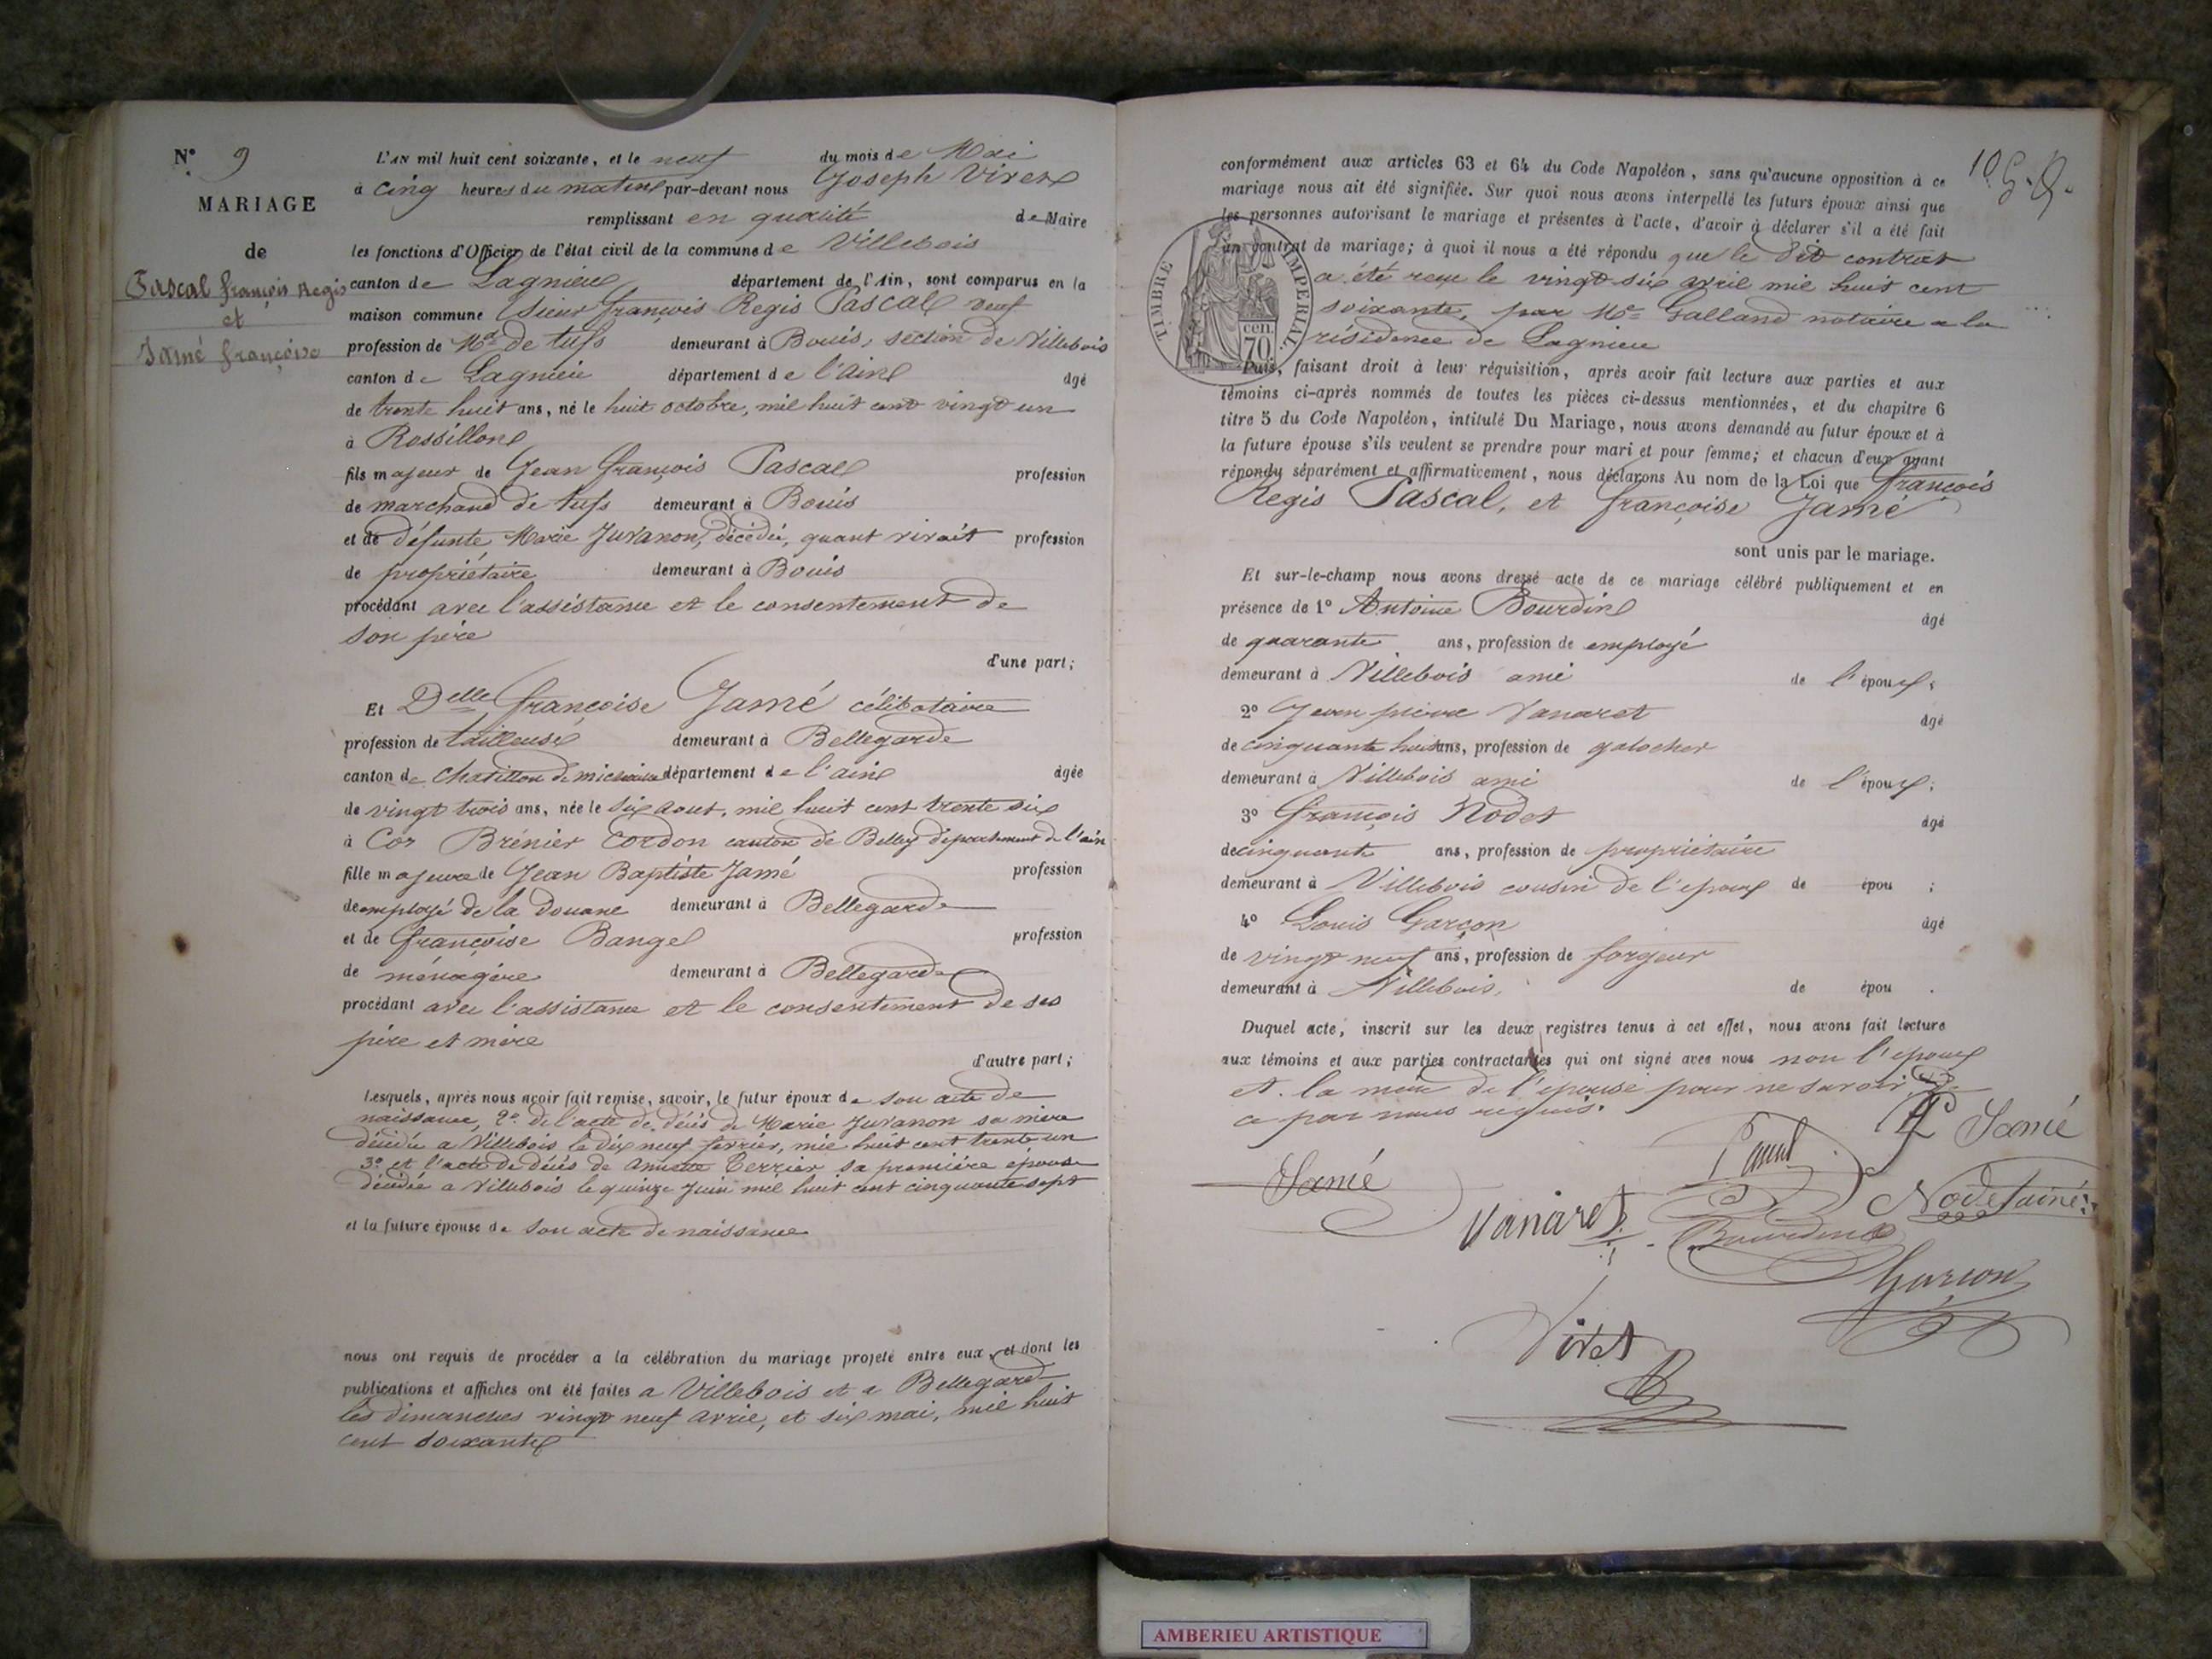 N° 9
MARIAGE
de
Pascal françois Regis
et
Jamé françoise
L'AN mil huit cent soixante, et le neuf du mois de Mai
à cinq heures du matin par-devant nous Joseph Viret
remplissant en qualité de Maire
les fonctions d'Officier de l'état civil de la commune de Villebois
canton de Lagnieu département de l'Ain, sont comparus en la
maison commune Sieur françois Regis Pascal veuf
profession de Md de tufs demeurant à Bouis, section de Villebois
canton de Lagnieu département de l'ain âgé
de trente huit ans, né le huit octobre, mil huit cent vingt un
à Rossillon
fils majeur de Jean françois Pascal profession
de marchand de tufs demeurant à Bouis
et de défunte Marie Juvanon, décédée, quant vivait profession
de propriétaire demeurant à Bouis
procédant avec l'assistance et le consentement de
son père
d'une part;
Et Delle françoise Jamé célibataire
profession de tailleuse demeurant à Bellegarde
canton de Chatillon de michaille département de l'ain âgée
de vingt trois ans, née le six aout, mil huit cent trente six
à Cor Brénier Cordon canton de Belley département de l'ain
fille majeure de Jean Baptiste Jamé profession
de employé de la douane demeurant à Bellegarde
et de françoise Bangel profession
de ménagère demeurant à Bellegarde
procédant avec l'assistance et le consentement de ses
père et mère
d'autre part;
Lesquels, après nous avoir fait remise, savoir, le futur époux de son acte de
naissance, 2° de l'acte de décès de Marie Juvanon sa mère
décédée a Villebois le dix neuf ferrier, mil huit cent trente un
3° et l'acte de décès de Terrier sa première épouse
décédée a Villebois le quinze Juin mil huit cent cinquante sept
et la future épouse de son acte de naissance
nous ont requis de procéder a la célébration du mariage projeté entre eux, et dont les
publications et affiches ont été faites a Villebois et a Bellegarde
les dimanches vingt neuf avril, et six mai, mil huit
cent soixante
105.
conformément aux articles 63 et 64 du Code Napoléon, sans qu'aucune opposition à ce
mariage nous ait été signifiée. Sur quoi nous avons interpellé les futurs époux ainsi que
les personnes autorisant le mariage et présentes à l'acte, d'avoir à déclarer s'il a été fait
un contrat de mariage; à quoi il nous a été répondu que le dit contrat
a été reçu le vingt six avril mil huit cent
soixante, par Me Galland notaire a la
résidence de Lagnieu
TIMBRE IMPERIAL
70 cen.
Puis, faisant droit à leur réquisition, après avoir fait lecture aux parties et aux
témoins ci-après nommés de toutes les pièces ci-dessus mentionnées, et du chapitre 6
titre 5 du Code Napoléon, intitulé Du Mariage, nous avons demandé au futur époux et à
la future épouse s'ils veulent se prendre pour mari et pour femme; et chacun d'eux ayant
répondu séparément et affirmativement, nous déclarons Au nom de la Loi que françois
Regis Pascal, et françoise Jamé
sont unis par le mariage.
Et sur-le-champ nous avons dressé acte de ce mariage célébré publiquement et en
présence de 1° Antoine Bourdin âgé
de quarante ans, profession de employé
demeurant à Villebois ami de l'époux;
2° Jean pierre Vanaret âgé
de cinquante huit ans, profession de galocher
demeurant à Villebois ami de l'époux;
3° françois Nodet âgé
de cinquante ans, profession de propriétaire
demeurant à Villebois cousin de l'epoux de épou ;
4° Louis Garçon âgé
de vingt neuf ans, profession de forgeur
demeurant à Villebois, de épou .
Duquel acte, inscrit sur les deux registres tenus à cet effet, nous avons fait lecture
aux témoins et aux parties contractantes qui ont signé avec nous non l'epoux
et la mere de l'epouse pour ne savoir de
ce par nous requis.
Jamé
Jamé
Vanaret
Nodet ainé
Bourdin
Garçon
Viret
AMBERIEU ARTISTIQUE